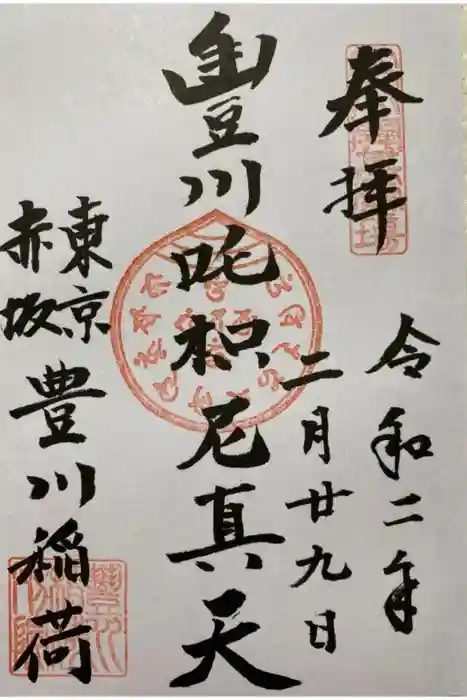 奉拝
令和二年
二月廿九日
豐川吒枳尼真天
東京
赤坂
豊川稲荷